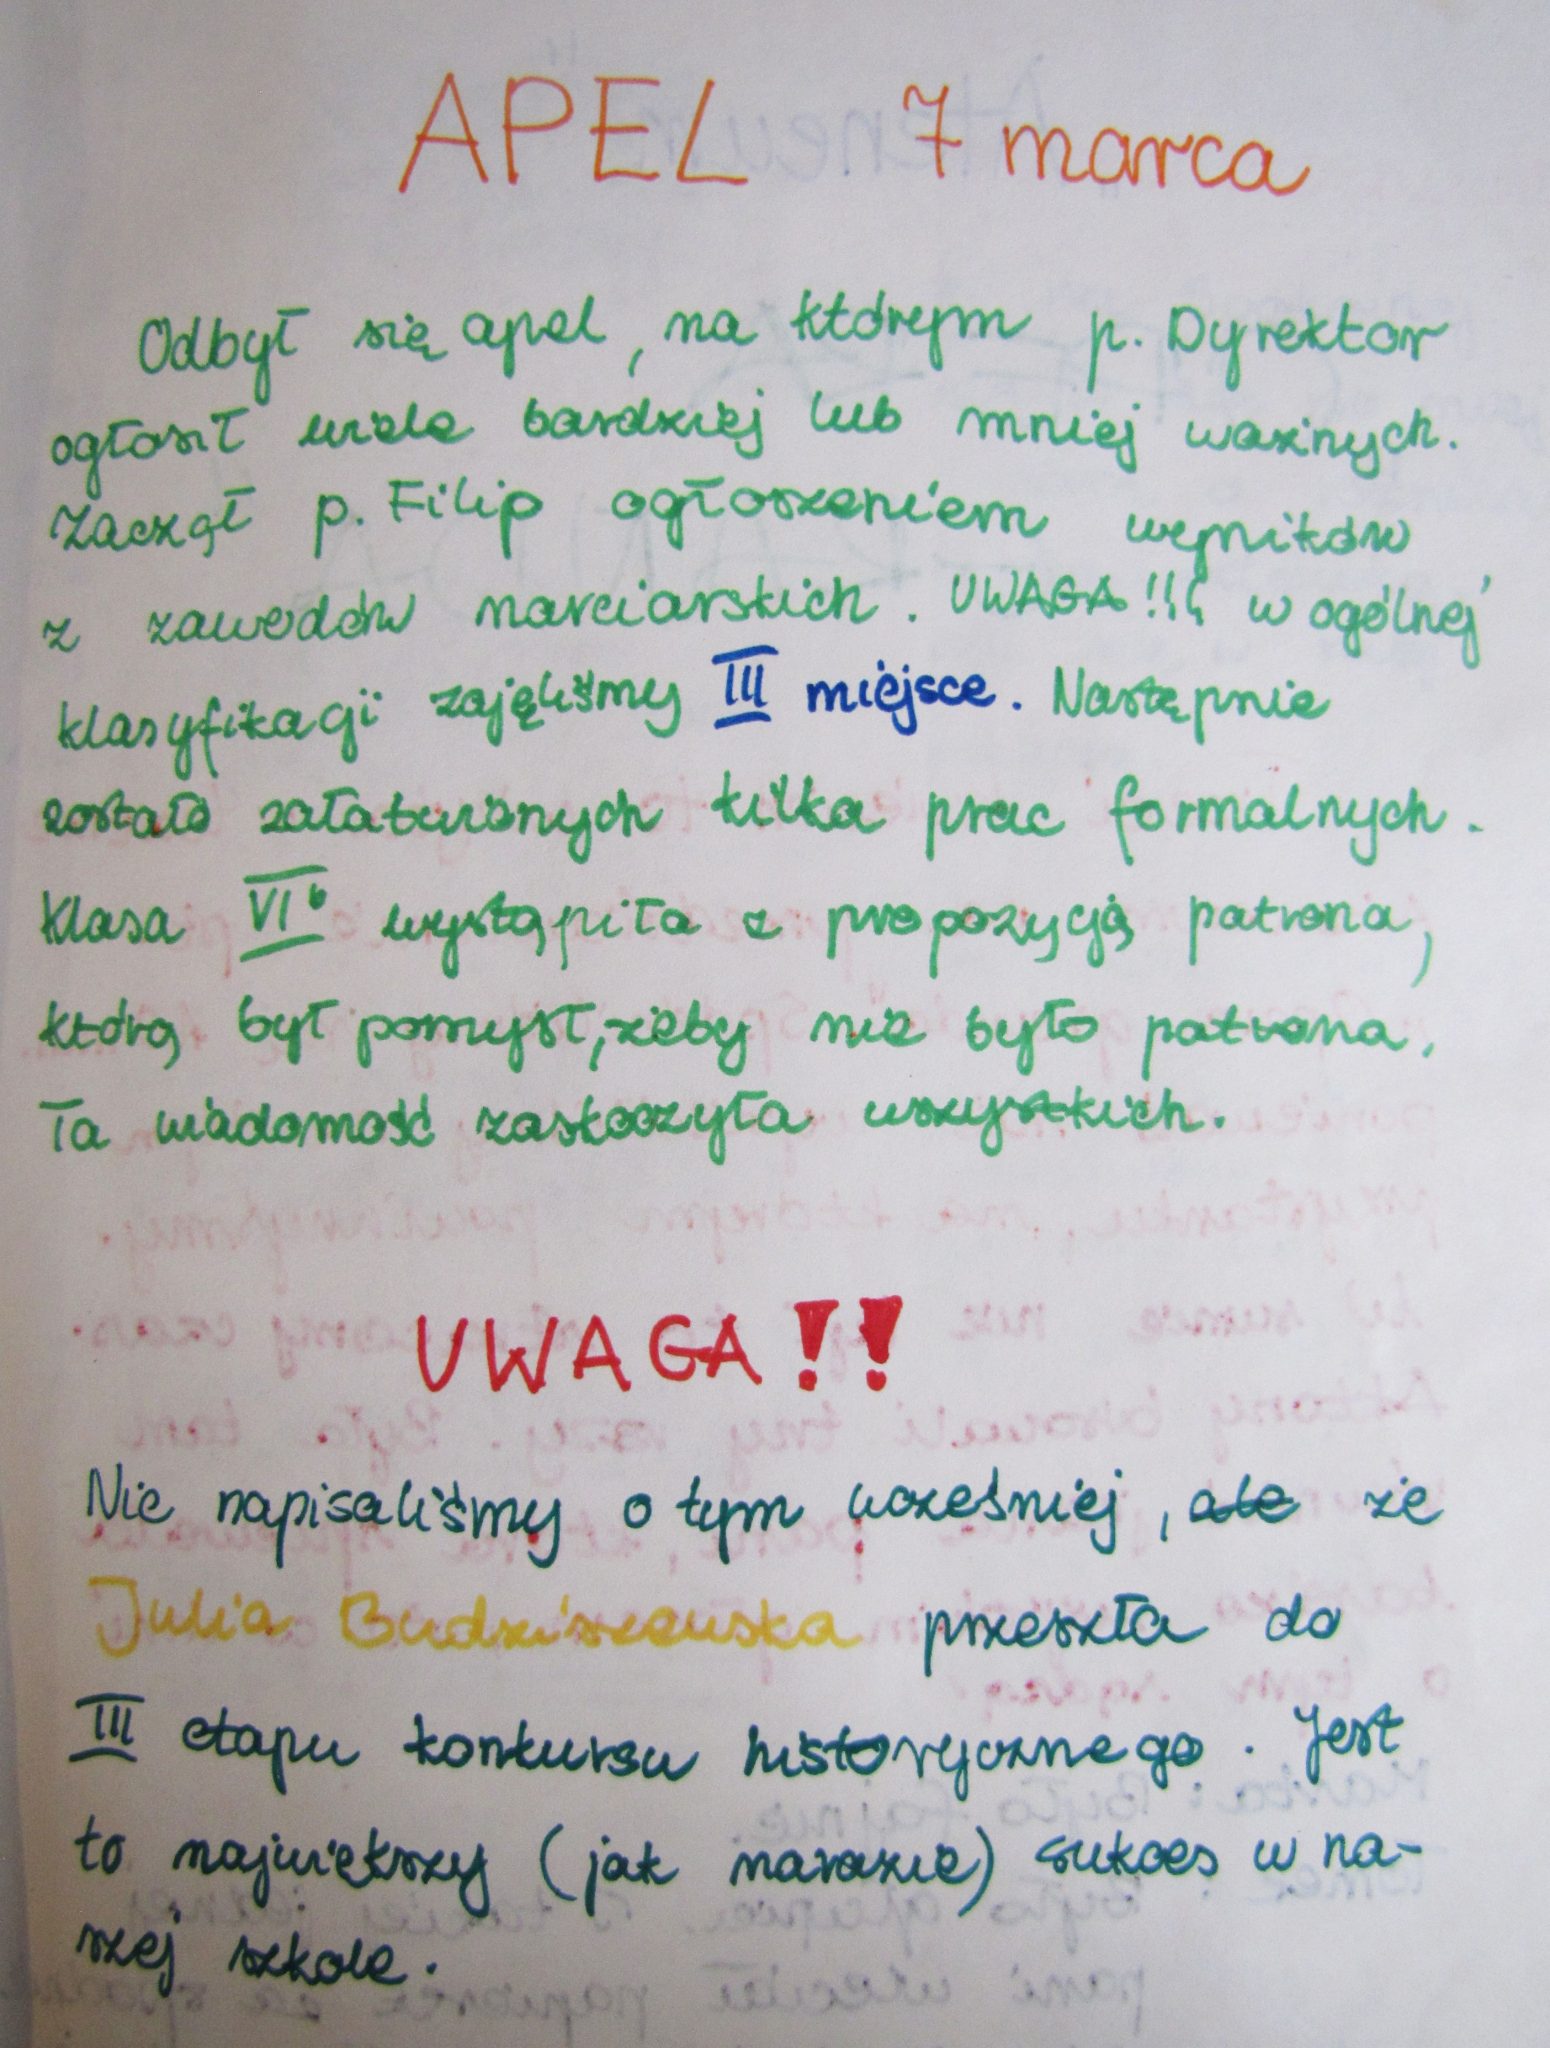 APEL 7 marca
Odbył się apel, na którym p. Dyrektor
ogłosił wiele bardziej lub mniej ważnych.
Zaczął p. Filip ogłoszeniem wyników
z zawodów narciarskich. UWAGA!!! w ogólnej
klasyfikacji zajęliśmy III miejsce. Następnie
zostało załatwionych kilka prac formalnych.
Klasa VI b wystąpiła z propozycją patrona,
którą był pomysł, żeby nie było patrona.
Ta wiadomość zaskoczyła wszystkich.
UWAGA!!
Nie napisaliśmy o tym wcześniej, ale że
Julia Budziszewska przeszła do
III etapu konkursu historycznego. Jest
to największy (jak narazie) sukces w na-
szej szkole.